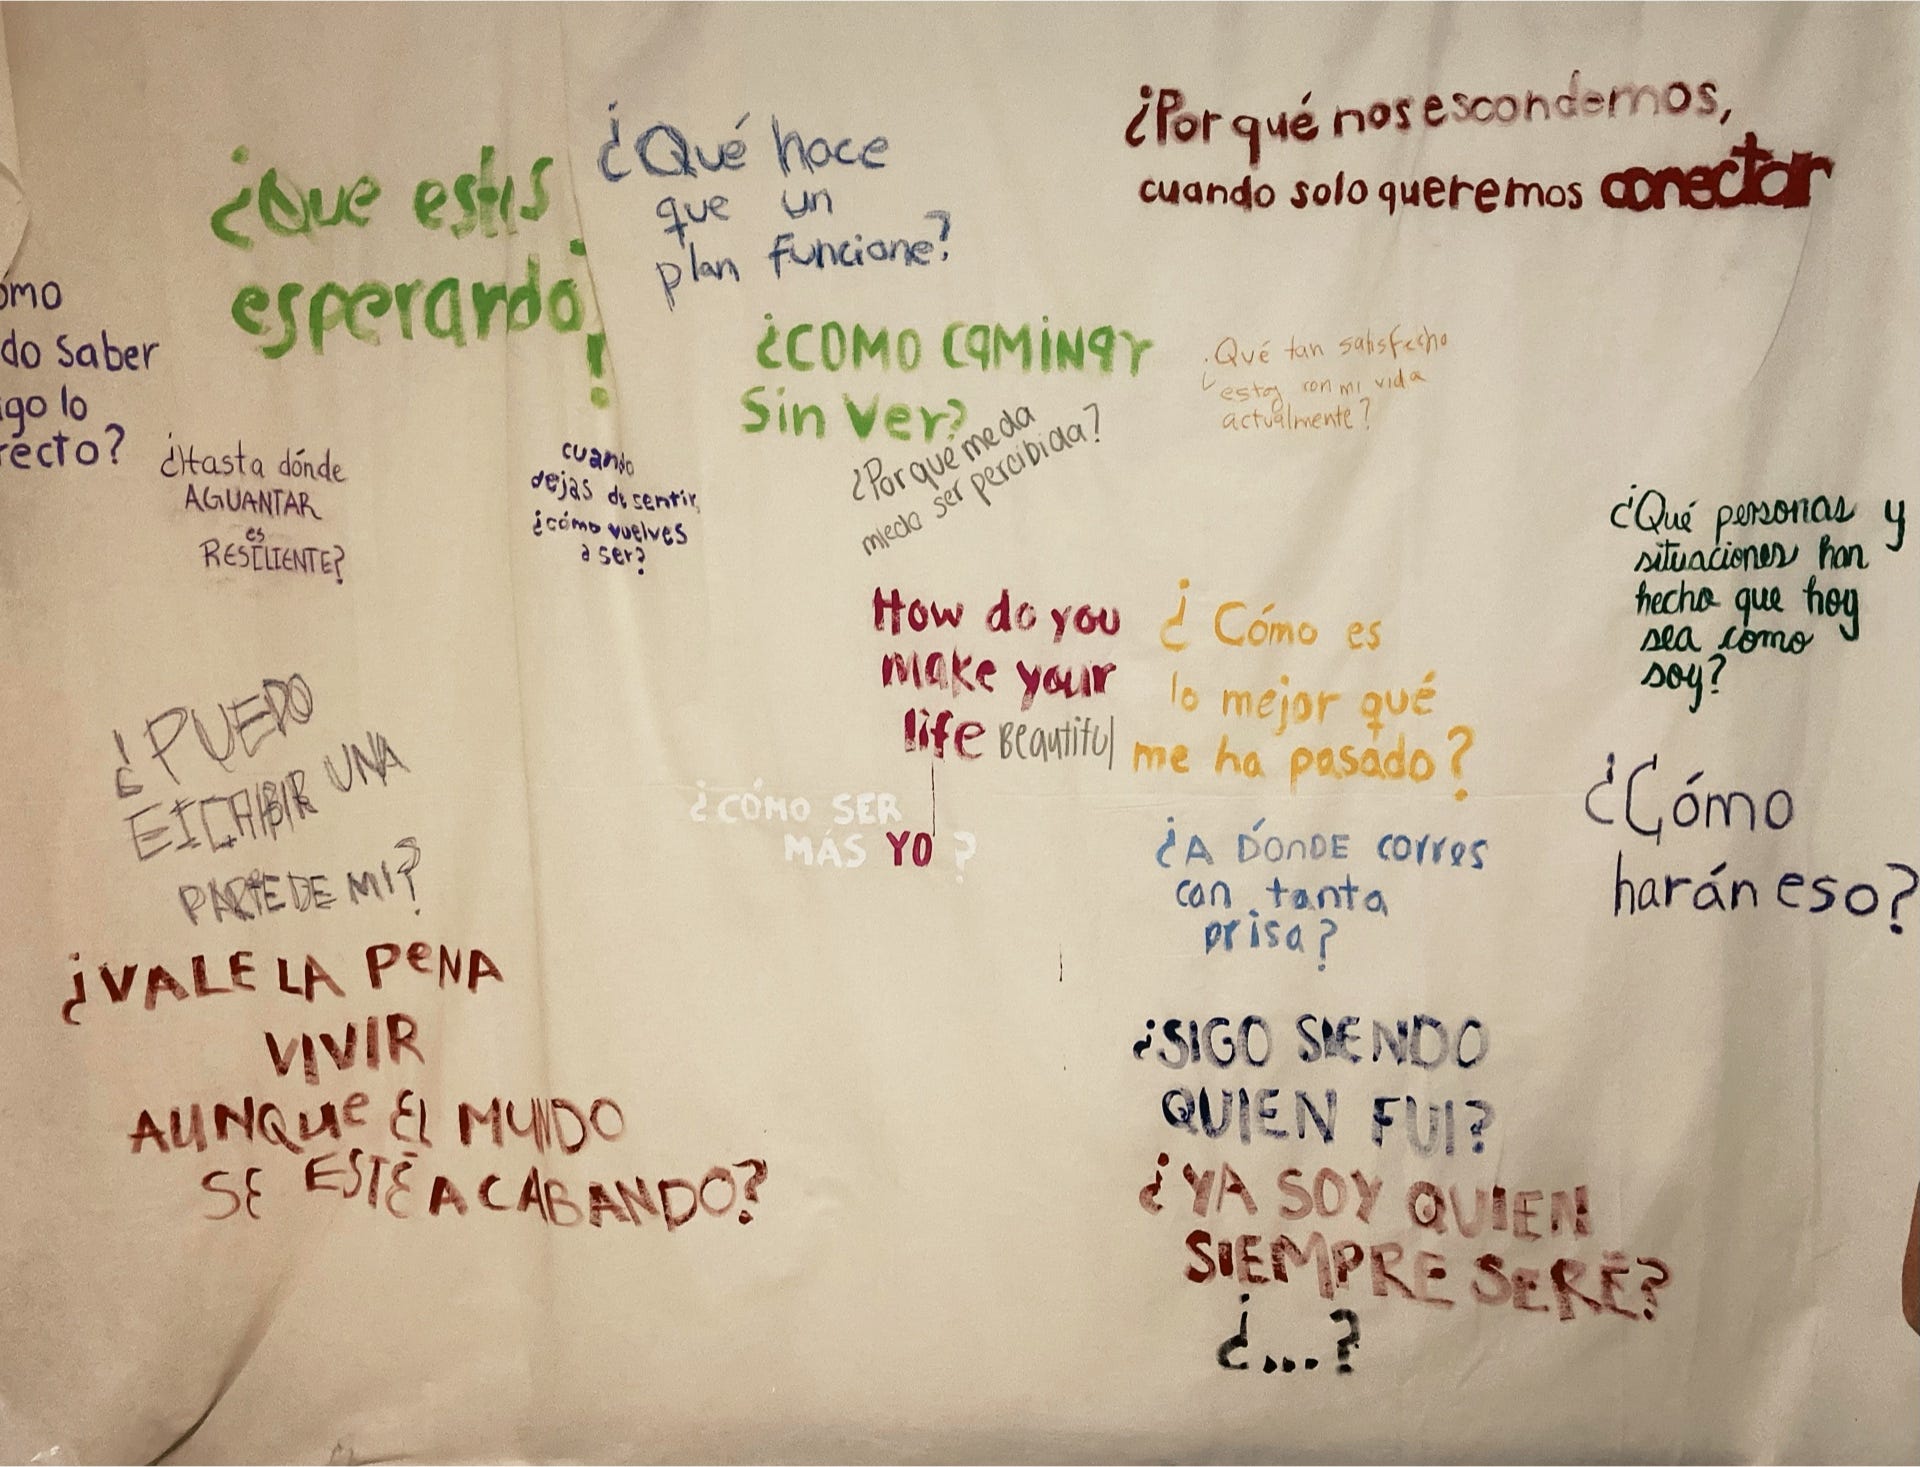 ¿Que estás
esperando?
!
¿Qué hace
que un
plan funcione?
¿Por qué nos escondemos,
cuando solo queremos conectar
ómo
do saber
igo lo
recto?
¿COMO CAMINAR
Sin Ver?
¿Qué tan satisfecho
estoy con mi vida
actualmente?
¿Hasta dónde
AGUANTAR
es
RESILIENTE?
cuando
dejas de sentir,
¿cómo vuelves
a ser?
¿Por qué me da
miedo ser percibida?
¿Qué personas y
situaciones han
hecho que hoy
sea como
soy?
How do you
make your
life Beautiful
¿Cómo es
lo mejor qué
me ha pasado?
¿PUEDO
UNA
PARTE DE MI?
¿CÓMO SER
MÁS YO?
¿A DÓNDE corres
con tanta
prisa?
¿Cómo
harán eso?
¿VALE LA PeNA
VIVIR
AUNQUe El MUNDO
SE ESTÉ ACABANDO?
¿SIGO SIENDO
QUIEN FUI?
¿YA SOY QUIEN
SIEMPRE SERÉ?
¿...?